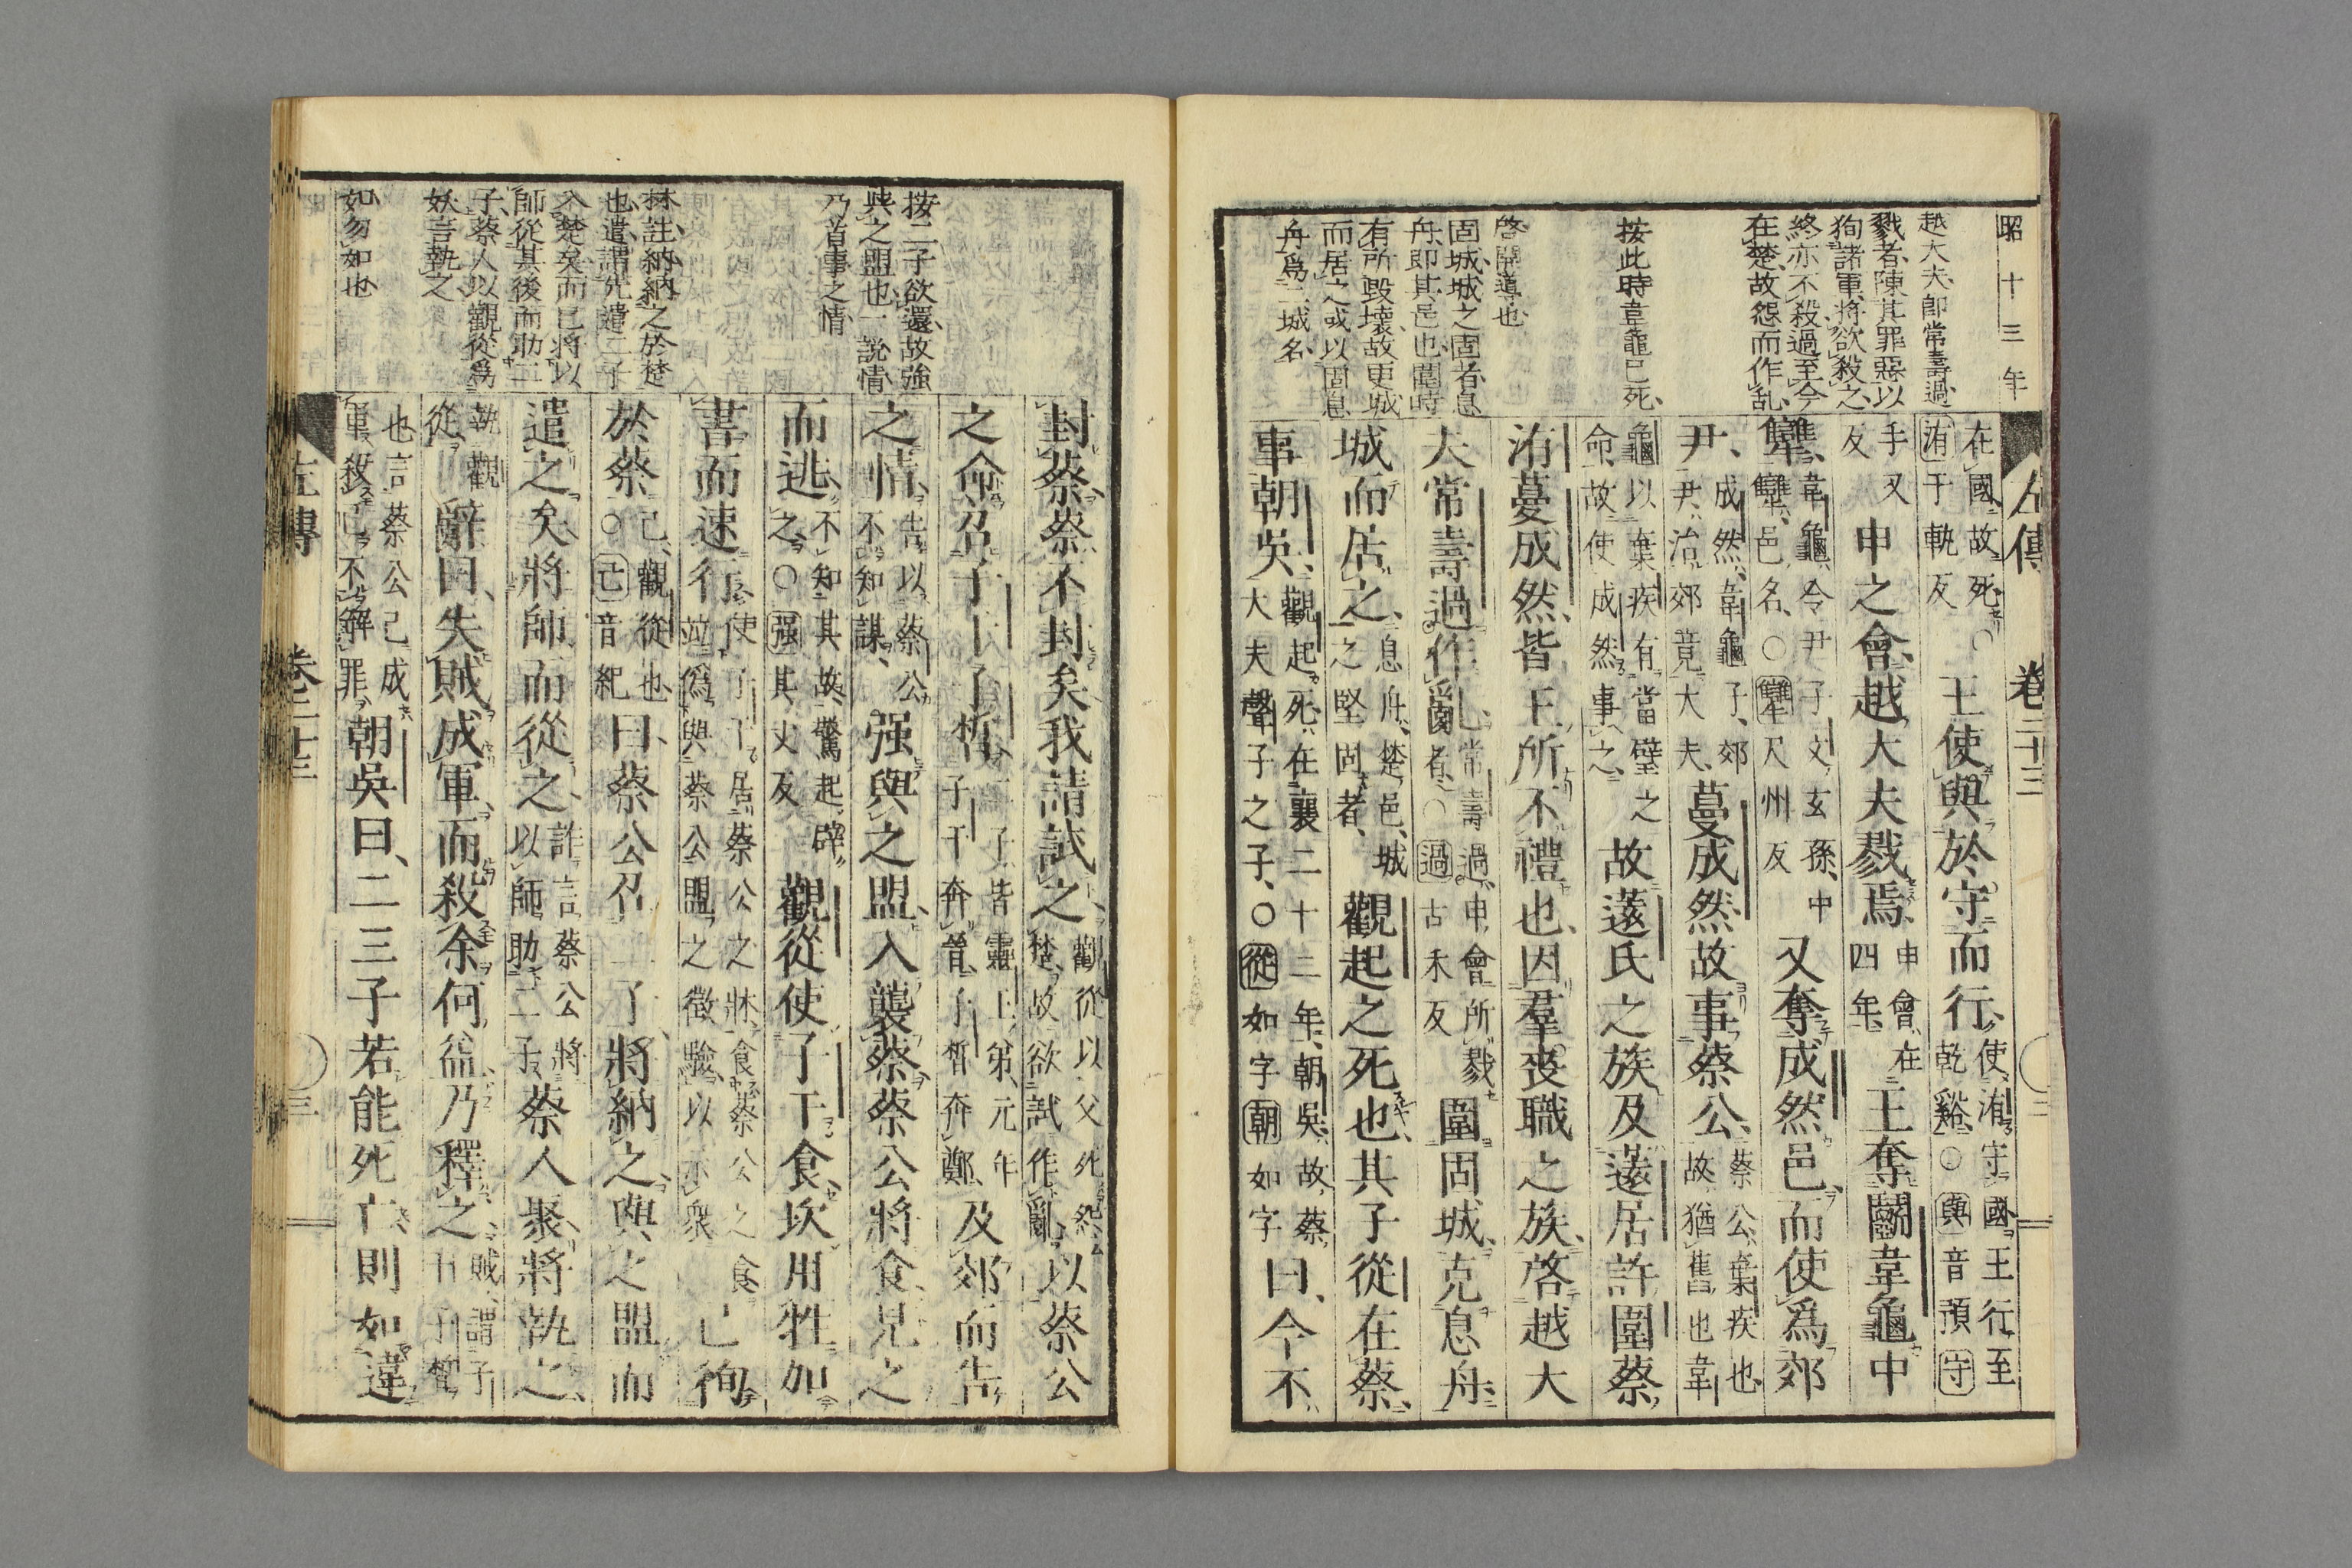 昭十三年
左傳 卷二十三 二
越大夫即常壽過
戮者陳其罪惡以
狥諸軍將欲殺之
終亦不殺過至今
在楚故怨而作乱
按此時韋龜已死
啓開導也
固城城之固者息
舟即其邑也圍時
有所毀壞故更城
而居之或以固息
舟爲二城名
在國故死○洧于軌反王使與於守而行使洧守國王行至乾谿○與音預守
手又反申之會越大夫戮焉申會在四年王奪鬬韋龜中
犫韋龜令尹子文玄孫中犫邑名○犫尺州反又奪成然邑而使爲郊
尹成然韋龜子郊尹治郊竟大夫蔓成然故事蔡公蔡公棄疾也故猶舊也韋
龜以棄疾有當璧之命故使成然事之故薳氏之族及薳居許圍蔡
洧蔓成然皆王所不禮也因羣喪職之族啓越大
夫常壽過作亂常壽過申會所戮者○過古禾反圍固城克息舟
城而居之息舟楚邑城之堅固者觀起之死也其子從在蔡
事朝吳觀起死在襄二十二年朝吳故蔡大夫聲子之子○從如字朝如字曰今不
按二子欲還故強
與之盟也一說情
乃首事之情
林註納納之於楚
也遣謂先遣二子
入楚矣而已將以
師從其後而助二
子蔡人以觀從爲
妖言執之
如勿如也
封蔡蔡不封矣我請試之觀從以父死怨楚故欲試作亂以蔡公
之命召子干子皙二子皆靈王弟元年子干奔晉子皙奔鄭及郊而告
之情告以蔡公不知謀强與之盟入襲蔡蔡公將食見之
而逃不知其故驚起辟之○强其丈反觀從使子干食坎用牲加
書而速行使子干居蔡公之牀食蔡公之食並僞與蔡公盟之徵驗以示衆己徇
於蔡己觀從也○己音紀曰蔡公召二子將納之與之盟而
遣之矣將師而從之詐言蔡公將以師助二子蔡人聚將執之
執觀從辭曰失賊成軍而殺余何益乃釋之賊謂子干子皙
也言蔡公已成軍殺己不解罪朝吳曰二三子若能死亡則如違
左傳 卷二十三 三